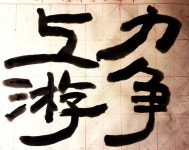 力争
上游